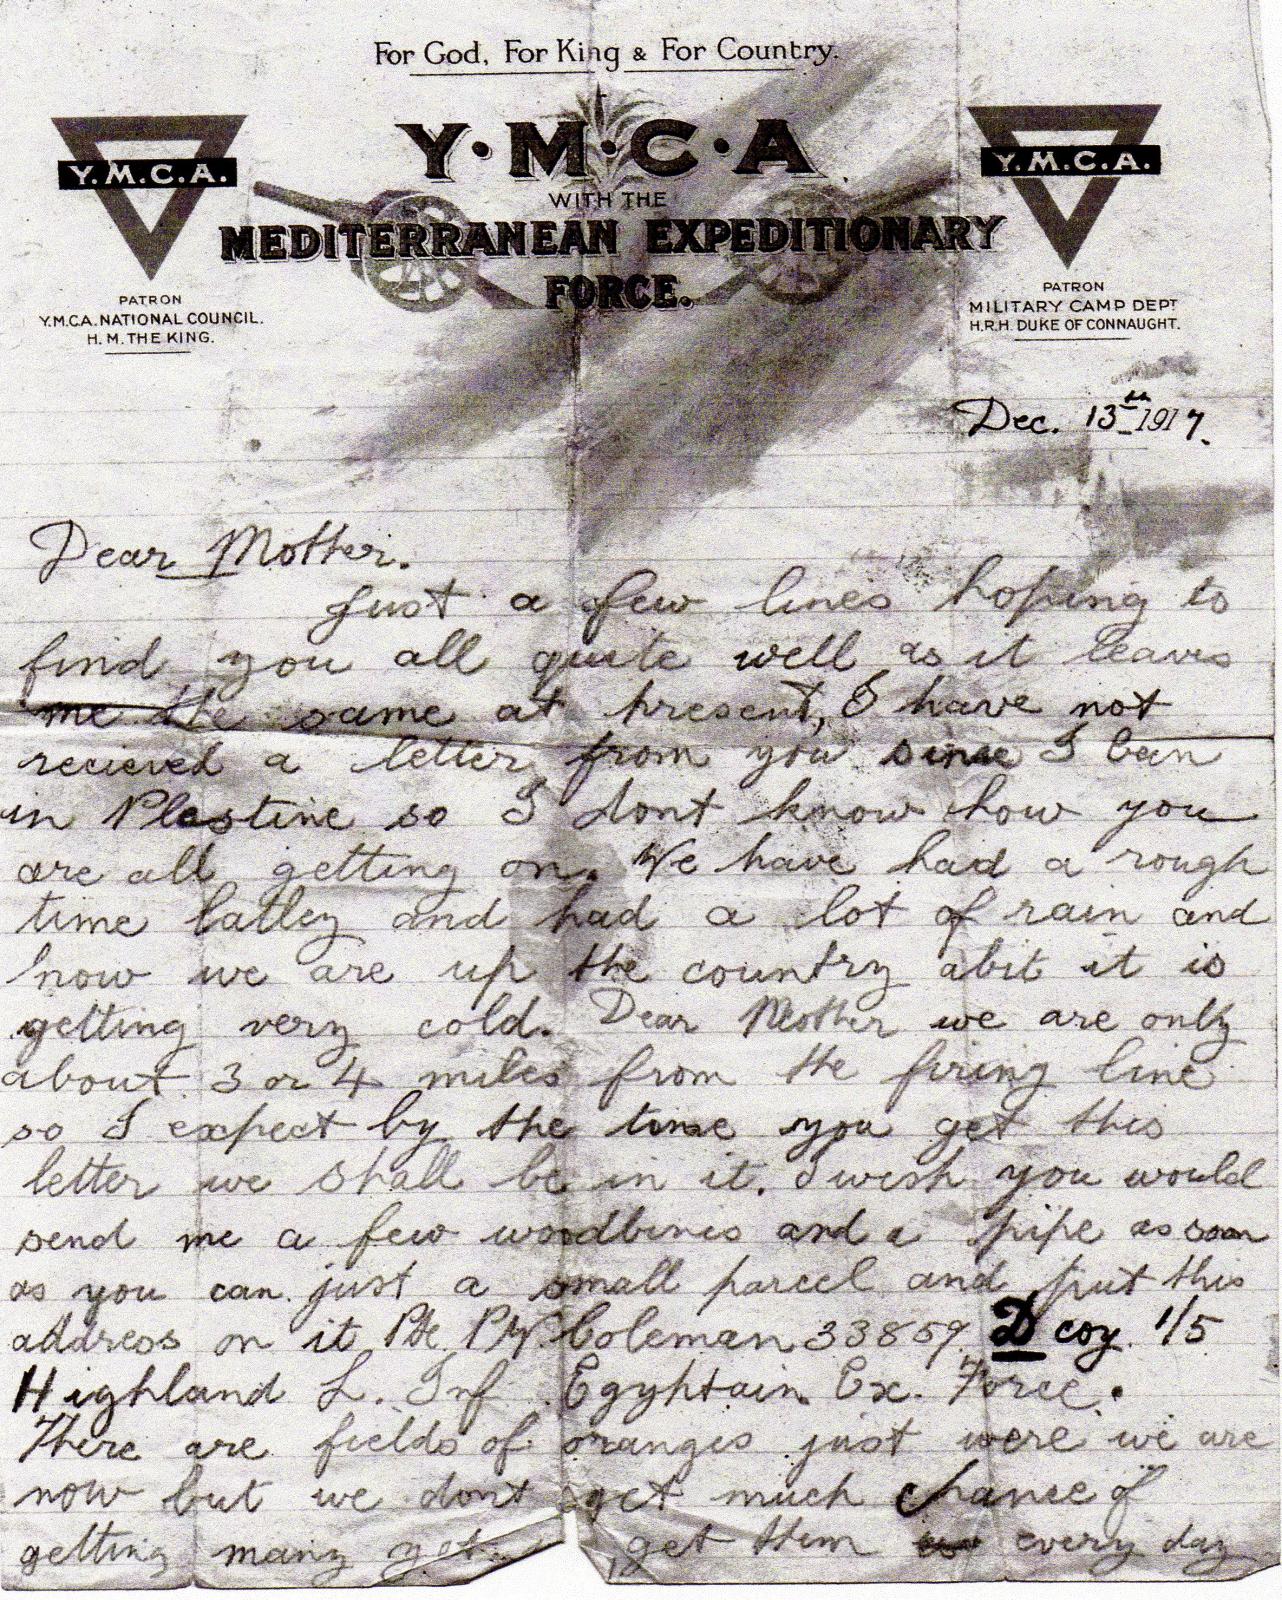 For God, For King & For Country.
Y.M.C.A
Y.M.C.A.
Y.M.C.A.
WITH THE
MEDITERRANEAN EXPEDITIONARY
FORCE.
PATRON
Y.M.C.A. NATIONAL COUNCIL.
H. M. THE KING.
PATRON
MILITARY CAMP DEPT
H.R.H. DUKE OF CONNAUGHT.
Dec. 13th 1917.
Dear Mother.
Just a few lines hoping to
find you all quite well as it leavs
me the same at present, I have not
recieved a letter from you since I been
in Plestine so I dont know how you
are all getting on. We have had a rough
time latley and had a lot of rain and
now we are up the country abit it is
getting very cold. Dear Mother we are only
about 3 or 4 miles from the firing line
so I expect by the time you get this
letter we shall be in it. I wish you would
send me a few woodbines and a pipe as soon
as you can just a small parcel and put this
address on it Pte. P.W. Coleman 33859. D coy. 1/5
Highland L. Inf Egyptain Ex. Force.
There are fields of oranges just were we are
now but we dont get much chance of
getting many get them every day